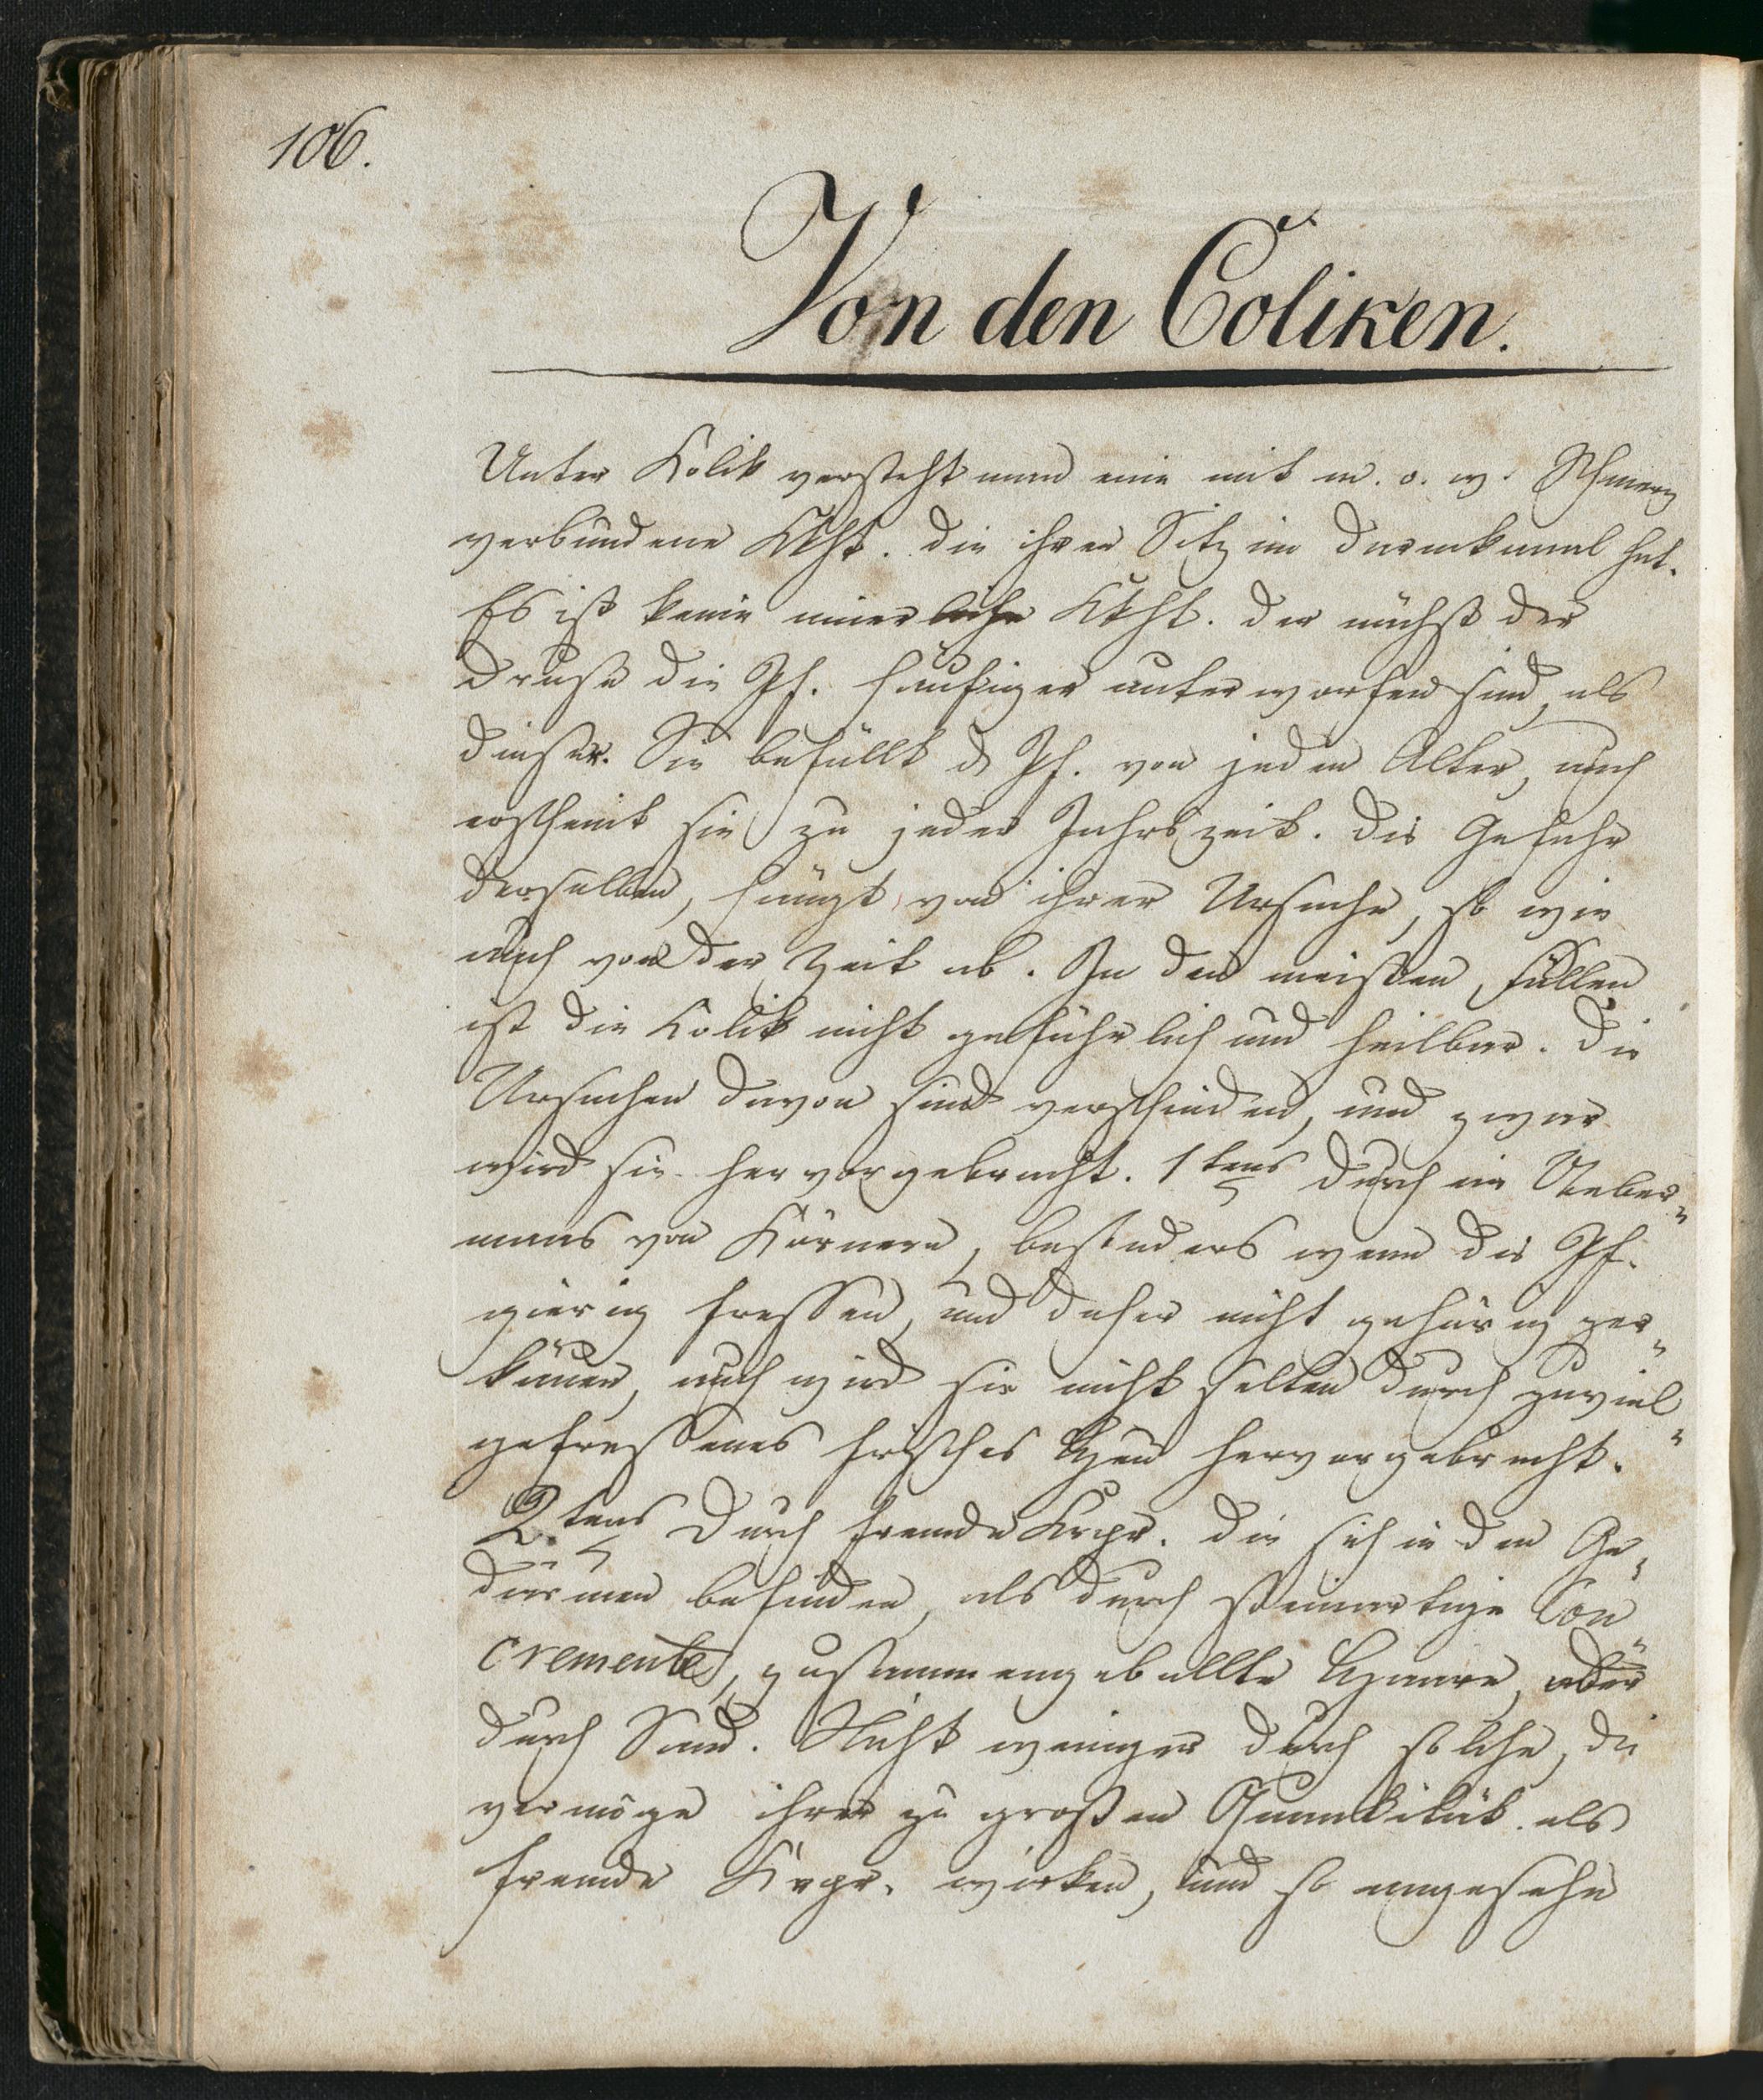 106.
Von den Coliken.
Unter Kolik versteht man eine mit m. o. w. Schmerz
verbundene Kkht. die ihren Sitz im Darmkanal hat.
Es ist keine innerliche Kkht. der nächst der
Druse die Pf. häufiger unterworfen sind, als
dieser. Sie befällt d Pf. von jedem Alter, auch
erscheint sie zu jeder Jahrszeit. Die Gefahr
derselben, hängt von ihrer Ursache, so wie
auch von der Zeit ab. In den meisten Fällen
ist die Kolik nicht gefährlich und heilbar. Die
Ursachen davon sind verschieden, und zwar
wird sie hervorgebracht. 1tens durch ein Ueber„
maas von Körnern, besonders wenn die Pf.
gierig fressen, und daher nicht gehörig zer„
käuen, auch wird sie nicht selten durch zuviel
gefressenes frisches Heu hervorgebracht.
2.tens Durch fremde Krpr. die sich in den Ge„
därmen befinden, als durch steinartige Con„
cremente, zusammengeballte Haare, oder
durch Sand. Nicht weniger durch solche, die
vermöge ihrer zu großen Quantität als
fremde Krpr. wirken, und so angesehn